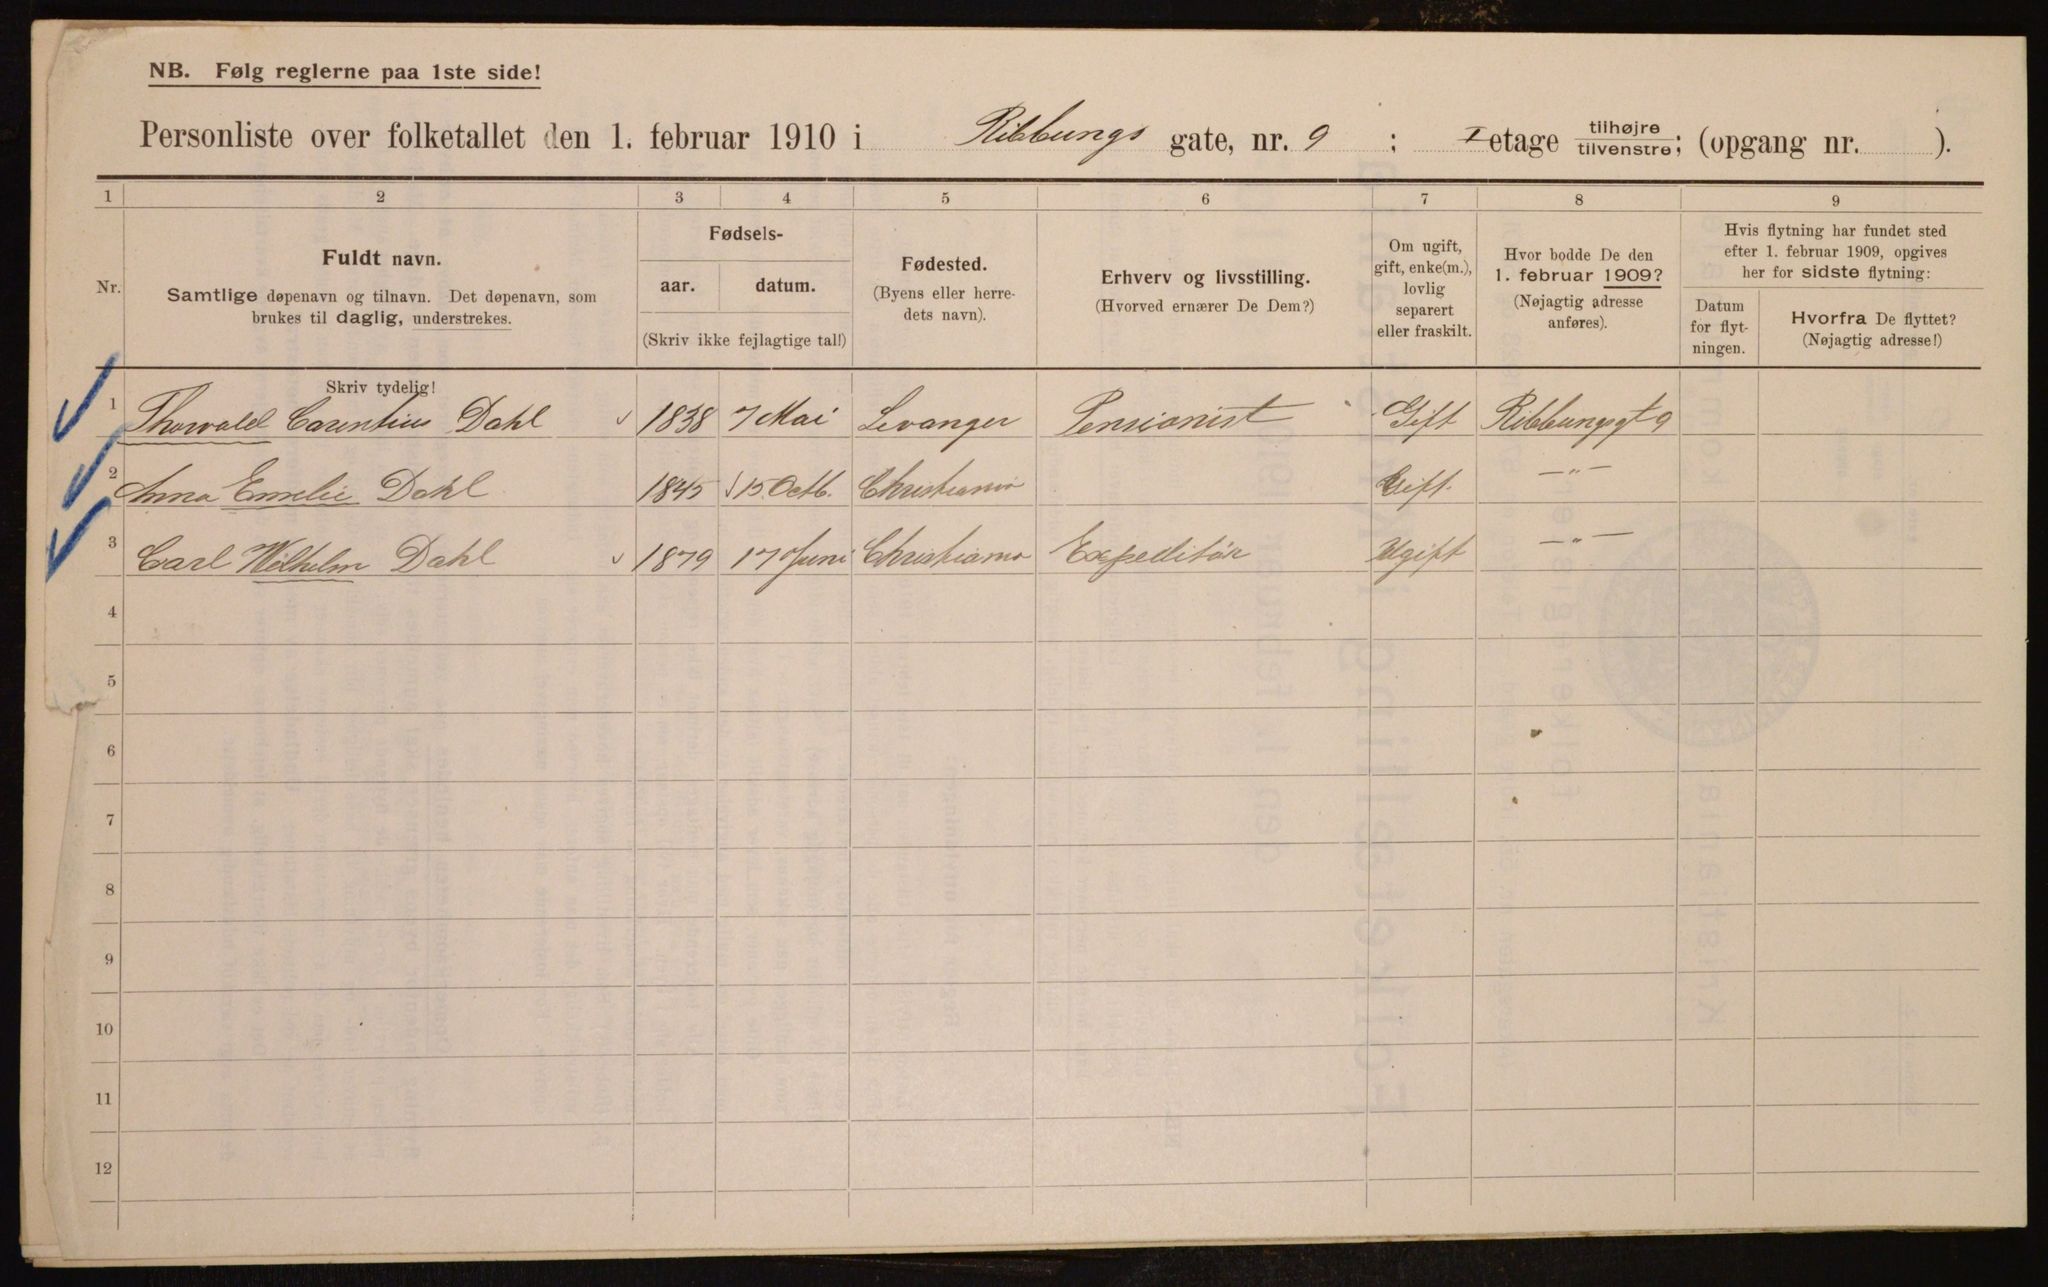 NB. Følg reglerne paa 1ste side!
Personliste over folketallet den 1. februar 1910 i Ribbungs gate, nr. 9 ; I etage tilhøjre tilvenstre; (opgang nr. ).
1 2 3 4 5 6 7 8 9
Nr.
Fuldt navn.
Samtlige døpenavn og tilnavn. Det døpenavn, som
brukes til daglig, understrekes.
Fødsels-
aar. datum.
(Skriv ikke fejlagtige tal!)
Fødested.
(Byens eller herre-
dets navn).
Erhverv og livsstilling.
(Hvorved ernærer De Dem?)
Om ugift,
gift, enke(m.),
lovlig
separert
eller fraskilt.
Hvor bodde De den
1. februar 1909?
(Nøjagtig adresse
anføres).
Hvis flytning har fundet sted
efter 1. februar 1909, opgives
her for sidste flytning:
Datum
for flyt-
ningen.
Hvorfra De flyttet?
(Nøjagtig adresse!)
Skriv tydelig!
1 Thorvald Corentius Dahl 1838 7 Mai Levanger Pensionist Gift Ribbungsgt 9
2 Anna Emelie Dahl 1845 15 Octb. Christiania Gift. —"—
3 Carl Wilhelm Dahl 1879 17 Juni Christiania Expeditör Ugift —"—
4
5
6
7
8
9
10
11
12